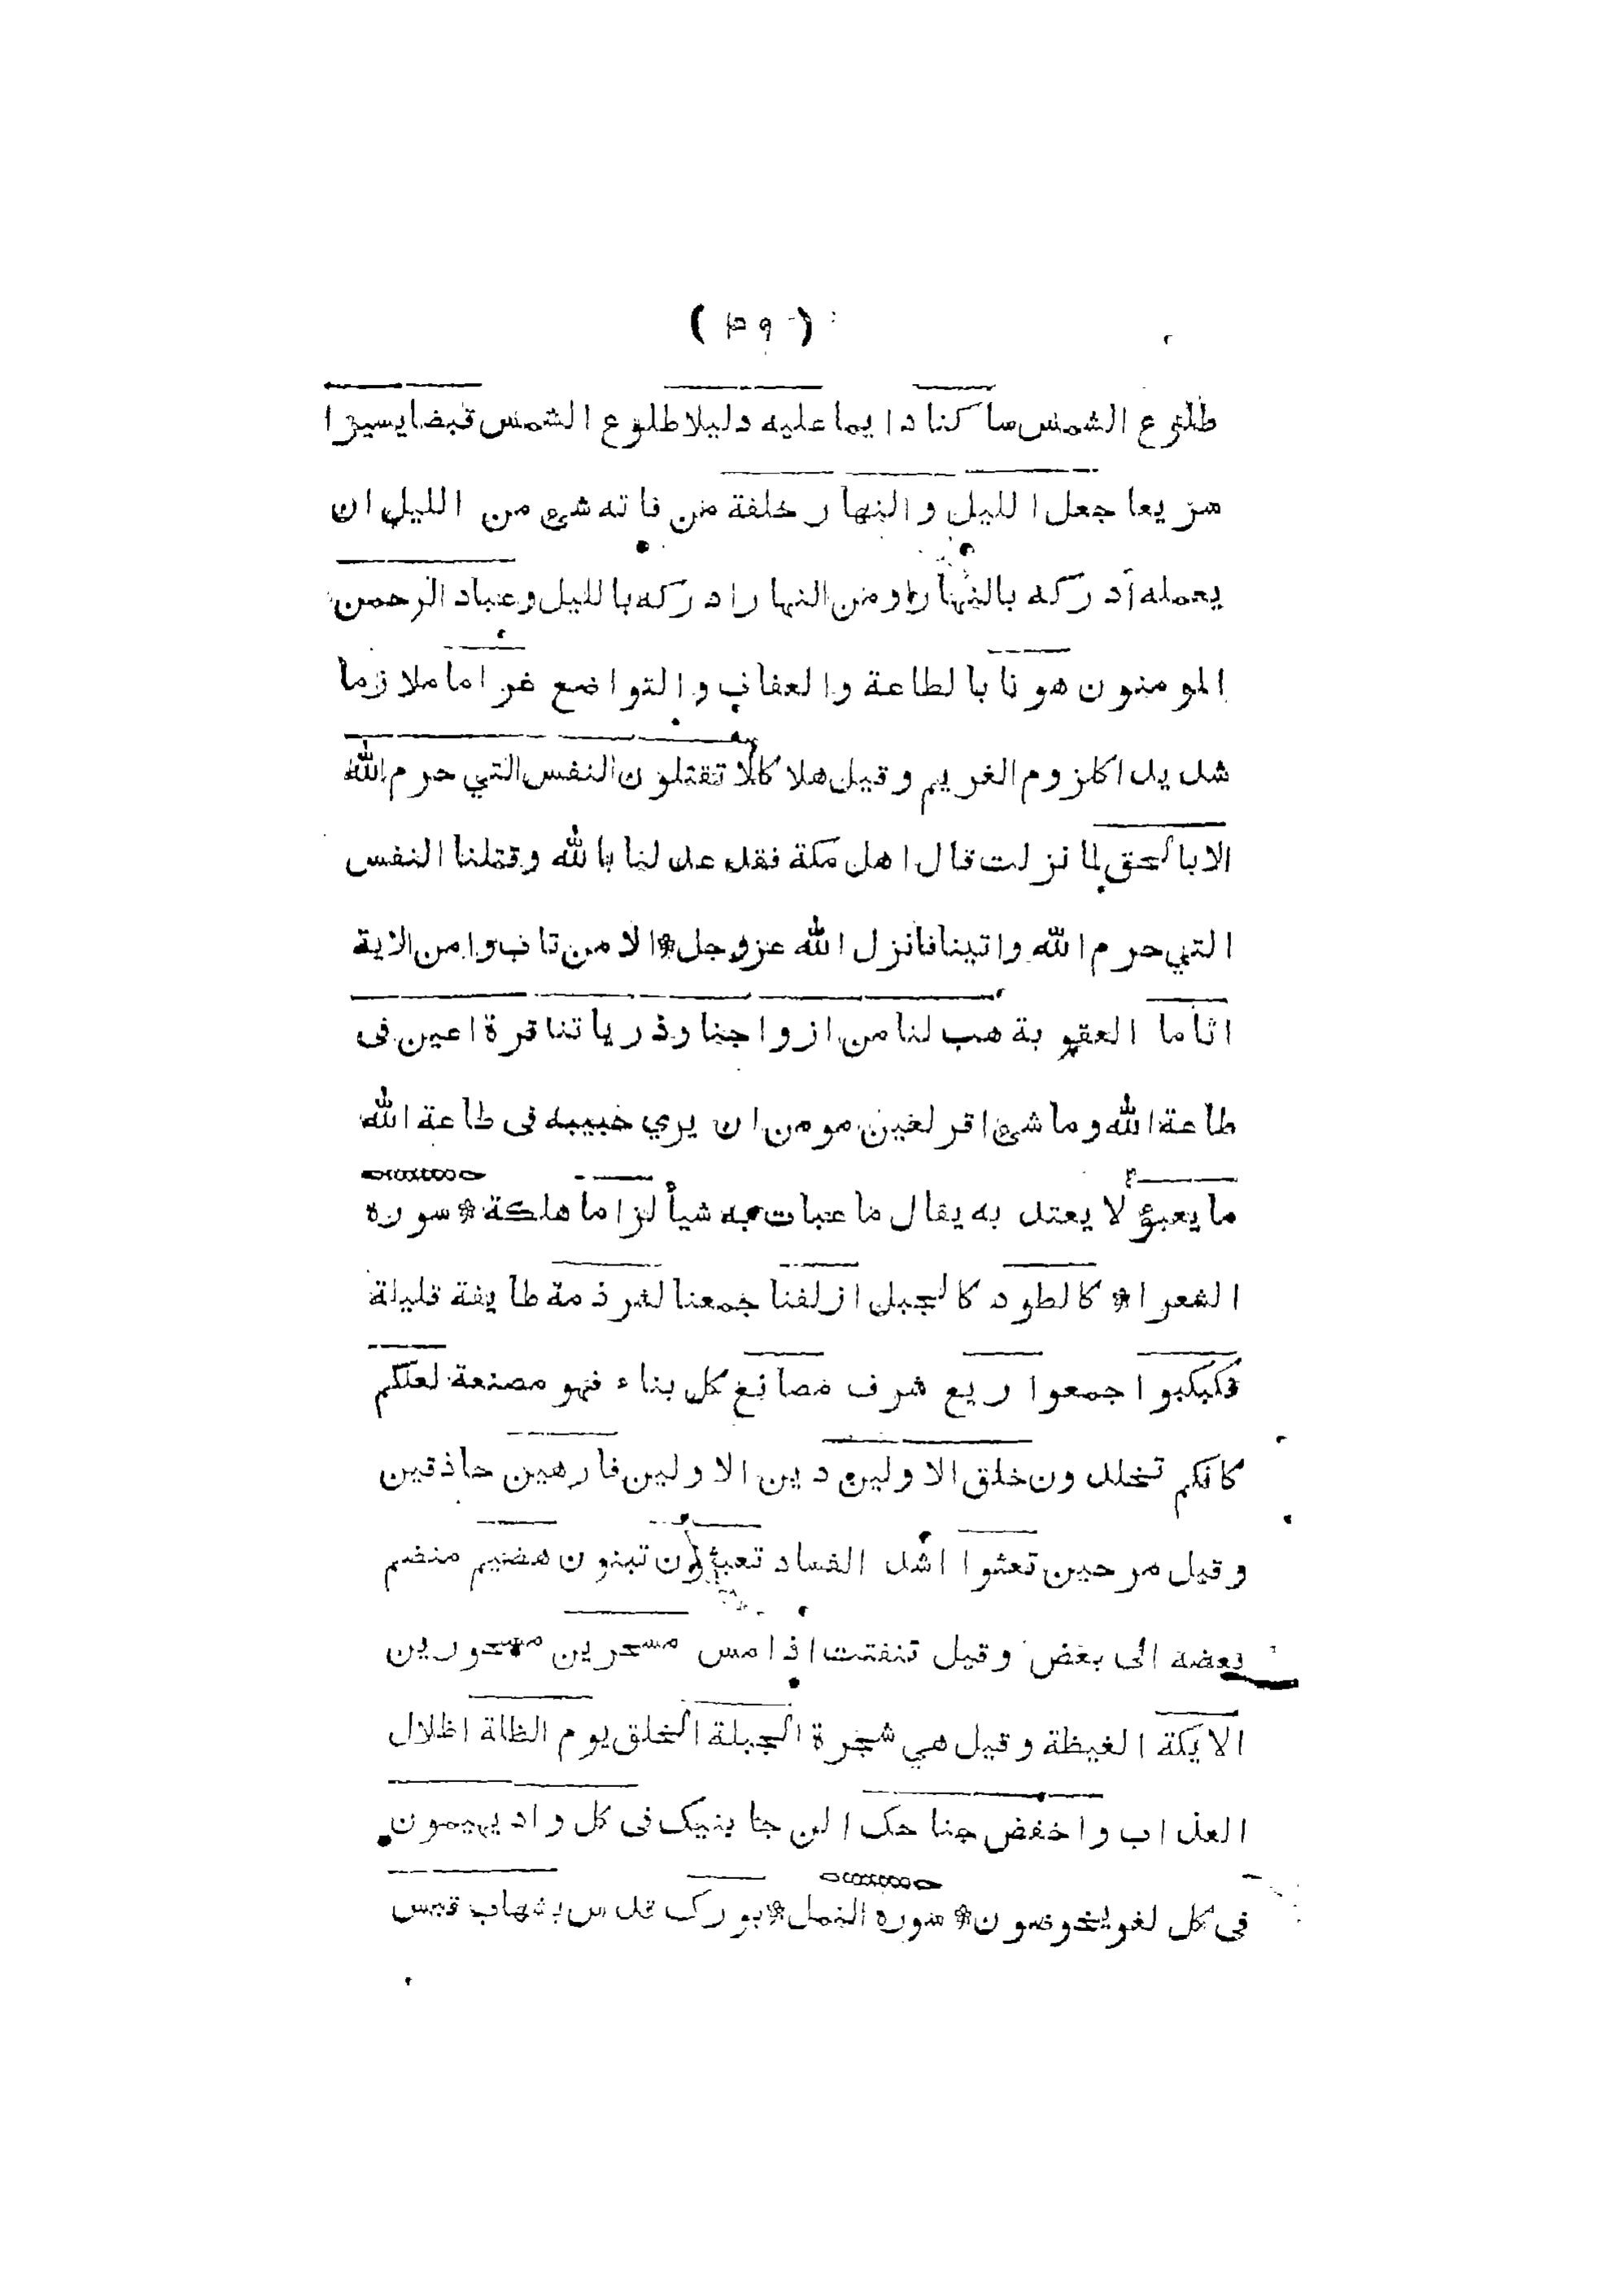 ( ٣٩ )
طلوع الشمس ساكنا دايما عليه دليلا طلوع الشمس قبضا يسيرا
سريعا جعل الليل والنهار خلفة من فاته شئ من الليل ان
يعمله ادركه بالنهار او من النهار ادركه بالليل وعباد الرحمن
المومنون هونا بالطاعة والعفاف والتواضع غراما ملازما
شديدا كلزوم الغريم وقيل هلاكا لا تقتلون النفس التي حرم الله
الا بالحق لما نزلت قال اهل مكة فقد عدلنا بالله وقتلنا النفس
التي حرم الله واتينا فانزل الله عز وجل * الا من تاب وامن الاية
اثاما العقوبة هب لنا من ازواجنا وذرياتنا قرة اعين فى
طاعة الله وما شئ اقر لعين مومن ان يري حبيبه فى طاعة الله
ما يعبؤ لا يعتد به يقال ما عبات به شيأ لزاما هلكة * سوره
الشعرا * كالطود كالجبل ازلفنا جمعنا لشرذمة طايفة قليلة
فكبكبوا جمعوا ريع شرف مصانع كل بناء فهو مصنعة لعلكم
كانكم تخلدون خلق الاولين دين الاولين فارهين حاذقين
وقيل مرحين تعثوا اشد الفساد تعبثون تبنون هضيم منضم
بعضه الى بعض وقيل تتفتت اذا مس مسحرين مسحورين
الايكة الغيظة وقيل هي شجرة الجبلة الخلق يوم الظلة اظلال
العذاب واخفض جناحك الن جانبك فى كل واد يهيمون
فى كل لغو يخوضون * سوره النمل * بورك قدس بشهاب قبس